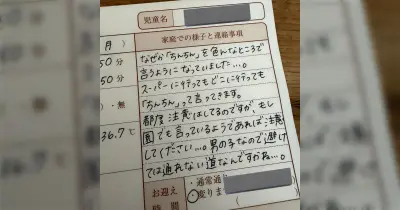 児童名
家庭での様子と連絡事項
月)
50分
50分
・無
36.7℃
なぜか「ちんちん」を色んなところで
言うようになっていました…。
スーパーに行ってもどこに行っても
「ちんちん」って言ってきます。
都度注意はしてるのですが、もし
園でも言っているようであれば注意
してください…。男の子なので避け
ては通れない道なんですかね…。
お迎え
時間
・通常通